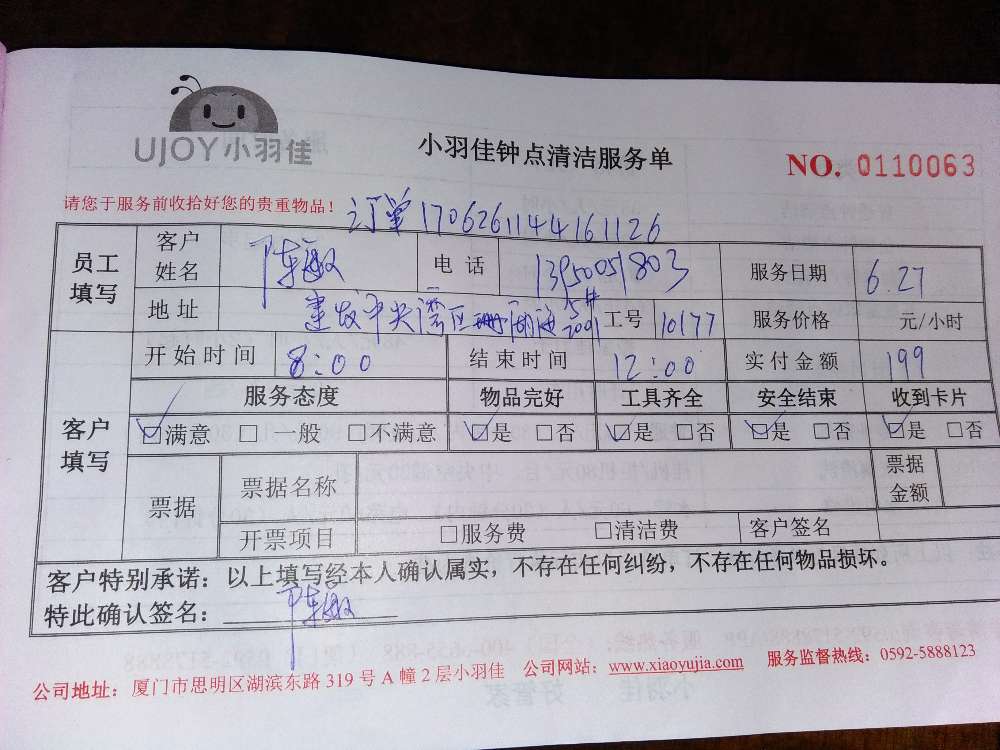 UJOY小羽佳
小羽佳钟点清洁服务单
NO. 0110063
请您于服务前收拾好您的贵重物品！
订单1706261144161126
员工填写 客户姓名 陈敏 电话 13950051803 服务日期 6.27
地址 建发中央湾区珊瑚海5# 2091 工号 10177 服务价格 元/小时
客户填写 开始时间 8:00 结束时间 12:00 实付金额 199
服务态度 物品完好 工具齐全 安全结束 收到卡片
☑满意 □一般 □不满意 ☑是 □否 ☑是 □否 ☑是 □否 ☑是 □否
票据 票据名称 票据金额
开票项目 □服务费 □清洁费 客户签名
客户特别承诺：以上填写经本人确认属实，不存在任何纠纷，不存在任何物品损坏。
特此确认签名：陈敏
公司地址：厦门市思明区湖滨东路319号A幢2层小羽佳 公司网站：www.xiaoyujia.com 服务监督热线：0592-5888123